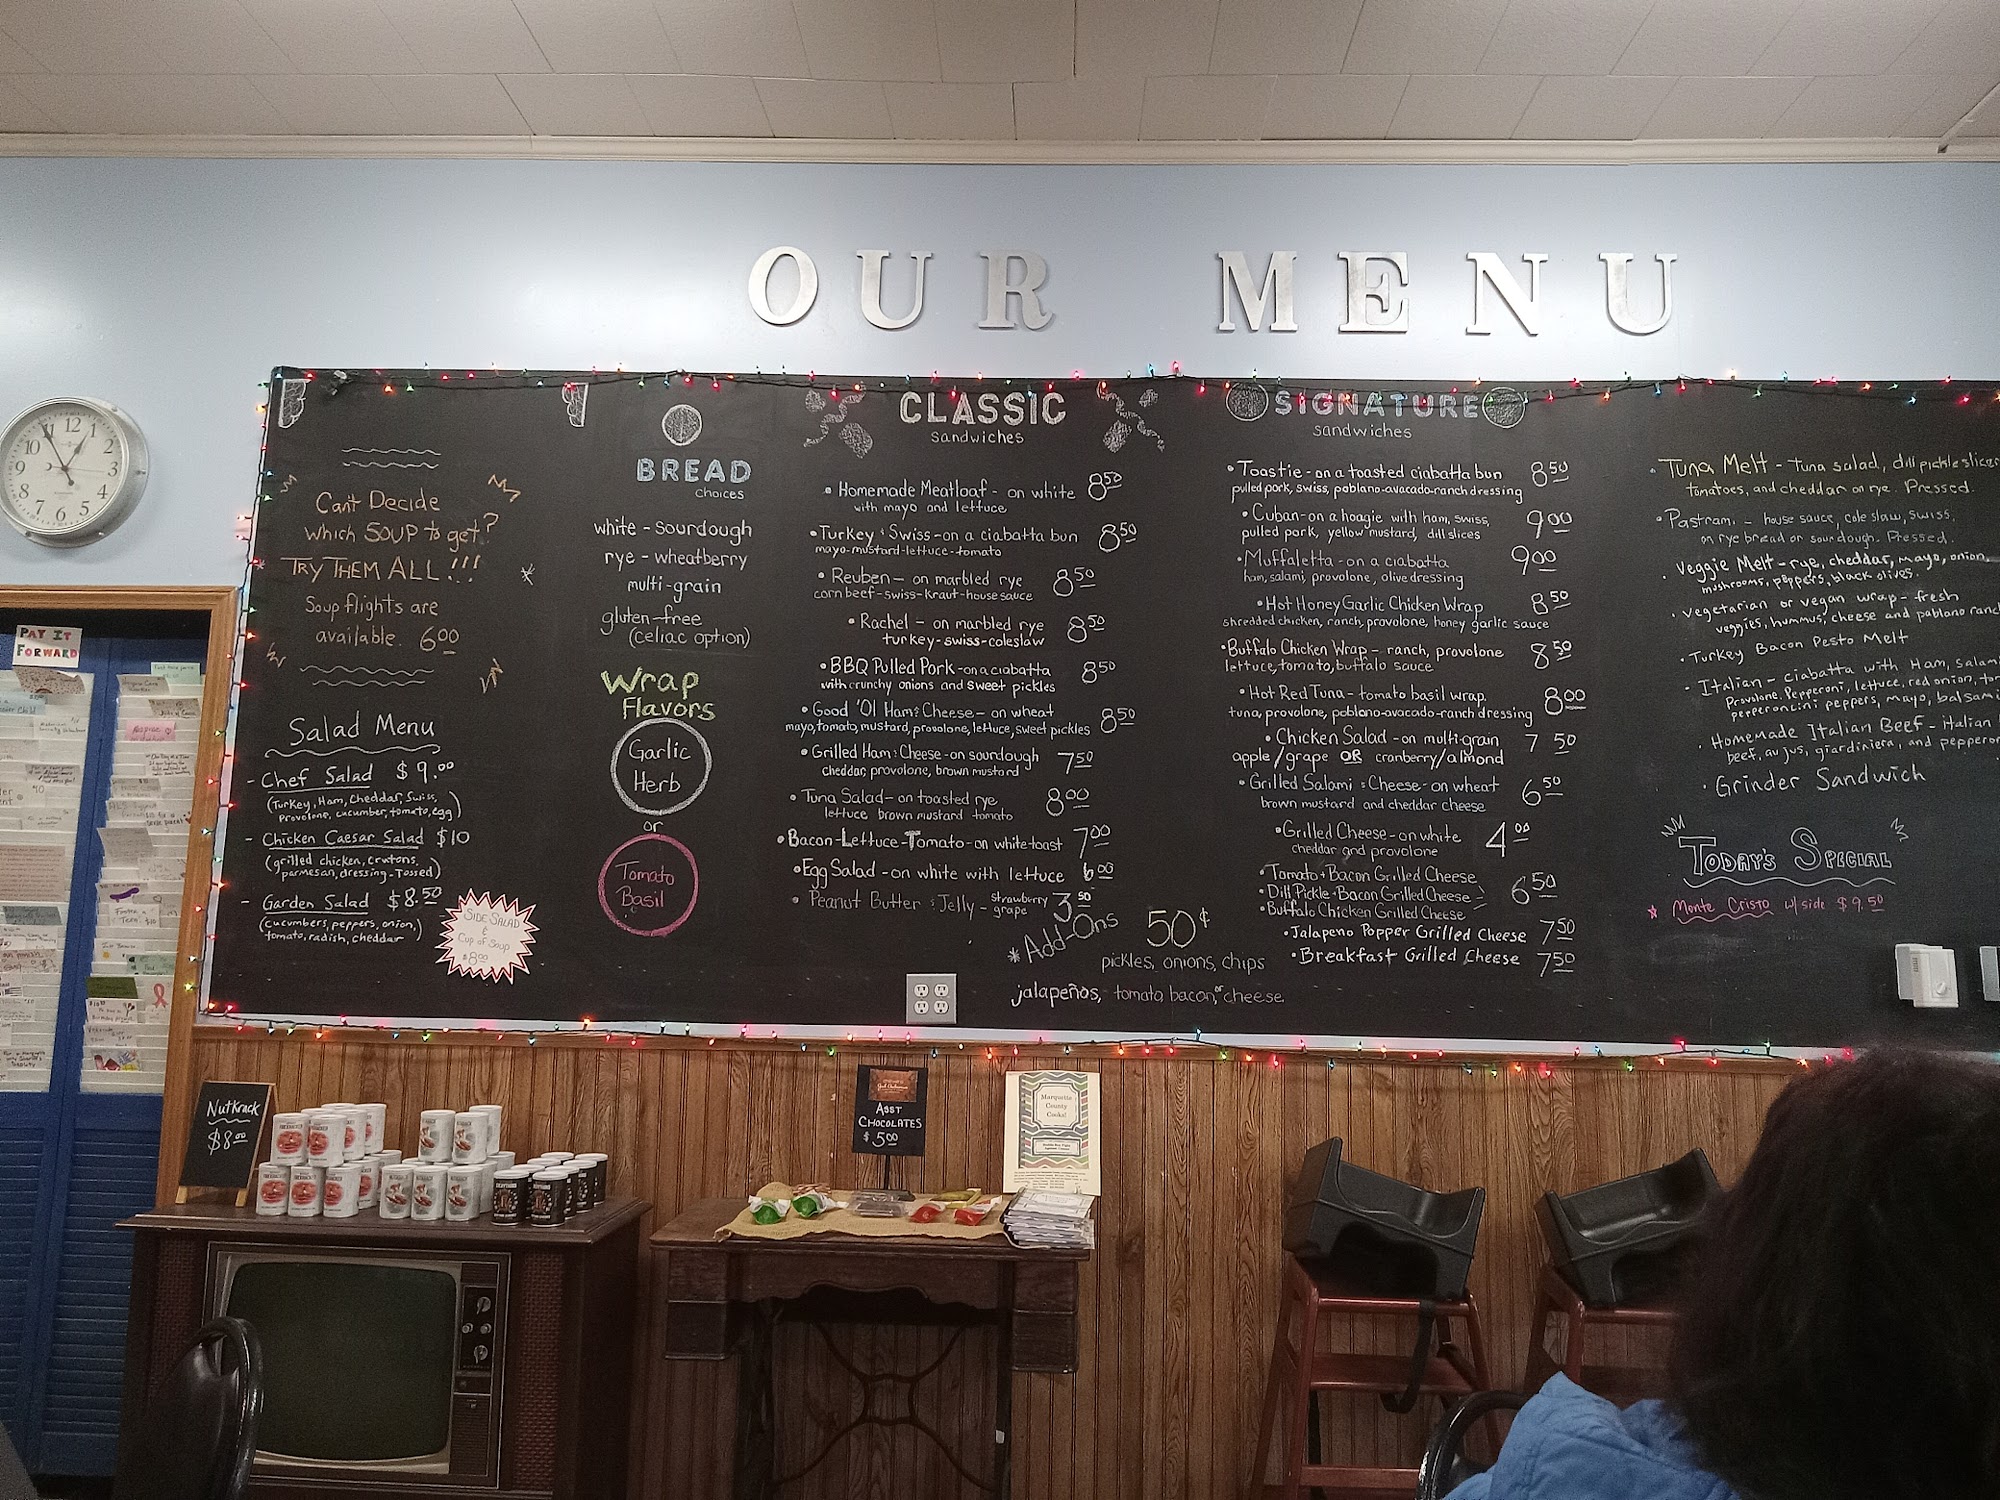 OUR MENU
Can't Decide
which SOUP to get?
TRY THEM ALL!!!
Soup flights are
available. 6 00
Salad Menu
- Chef Salad $9.00
(Turkey, Ham, Cheddar, Swiss,
Provolone, cucumber, tomato, egg)
- Chicken Caesar Salad $10
(grilled chicken, crutons,
parmesan, dressing - Tossed)
- Garden Salad $8.50
(cucumbers, peppers, onion,
tomato, radish, cheddar)
SIDE SALAD
&
Cup of Soup
$8 00
BREAD
choices
white - sourdough
rye - wheatberry
multi-grain
gluten-free
(celiac option)
Wrap
Flavors
Garlic
Herb
or
Tomato
Basil
CLASSIC
sandwiches
• Homemade Meatloaf - on white 8 50
with mayo and lettuce
• Turkey & Swiss - on a ciabatta bun 8 50
mayo-mustard-lettuce-tomato
• Reuben - on marbled rye 8 50
corn beef-swiss-kraut-house sauce
• Rachel - on marbled rye 8 50
turkey-swiss-coleslaw
• BBQ Pulled Pork - on a ciabatta 8 50
with crunchy onions and sweet pickles
• Good 'Ol Ham & Cheese - on wheat 8 50
mayo, tomato, mustard, provolone, lettuce, sweet pickles
• Grilled Ham & Cheese - on sourdough 7 50
cheddar, provolone, brown mustard
• Tuna Salad - on toasted rye 8 00
lettuce brown mustard tomato
• Bacon-Lettuce-Tomato - on white-toast 7 00
• Egg Salad - on white with lettuce 6 00
• Peanut Butter & Jelly - strawberry grape 3 50
* Add-Ons 50¢
pickles, onions, chips
jalapeños, tomato, bacon, or cheese.
SIGNATURE
sandwiches
• Toastie - on a toasted ciabatta bun 8 50
pulled pork, swiss, poblano-avacado-ranch dressing
• Cuban - on a hoagie with ham, swiss, 9 00
pulled pork, yellow mustard, dill slices
• Muffaletta - on a ciabatta 9 00
ham, salami, provolone, olive dressing
• Hot Honey Garlic Chicken Wrap 8 50
shredded chicken, ranch, provolone, honey garlic sauce
• Buffalo Chicken Wrap - ranch, provolone 8 50
lettuce, tomato, buffalo sauce
• Hot Red Tuna - tomato basil wrap. 8 00
tuna, provolone, poblano-avocado-ranch dressing
• Chicken Salad - on multi-grain 7 50
apple/grape OR cranberry/almond
• Grilled Salami & Cheese - on wheat 6 50
brown mustard and cheddar cheese
• Grilled Cheese - on white 4 00
cheddar and provolone
• Tomato + Bacon Grilled Cheese
• Dill Pickle + Bacon Grilled Cheese 6 50
• Buffalo Chicken Grilled Cheese
• Jalapeno Popper Grilled Cheese 7 50
• Breakfast Grilled Cheese 7 50
• Tuna Melt - tuna salad, dill pickle slices
tomatoes, and cheddar on rye. Pressed.
• Pastrami - house sauce, cole slaw, swiss,
on rye bread or sourdough. Pressed.
• Veggie Melt - rye, cheddar, mayo, onion,
mushrooms, peppers, black olives.
• Vegetarian or vegan wrap - fresh
veggies, hummus, cheese and poblano ranch
• Turkey Bacon Pesto Melt
• Italian - ciabatta with Ham, Salami
Provolone, Pepperoni, lettuce, red onion,
pepperoncini peppers, mayo,
• Homemade Italian Beef - italian
beef, au jus, giardiniera, and
• Grinder Sandwich
TODAY'S SPECIAL
* Monte Cristo w/ side $9.50
PAY IT
FORWARD
NutKrack
$8 00
ASST
CHOCOLATES
$5 00
Marquette
County
Cooks!
12 1 2 3 4 5 6 7 8 9 10 11